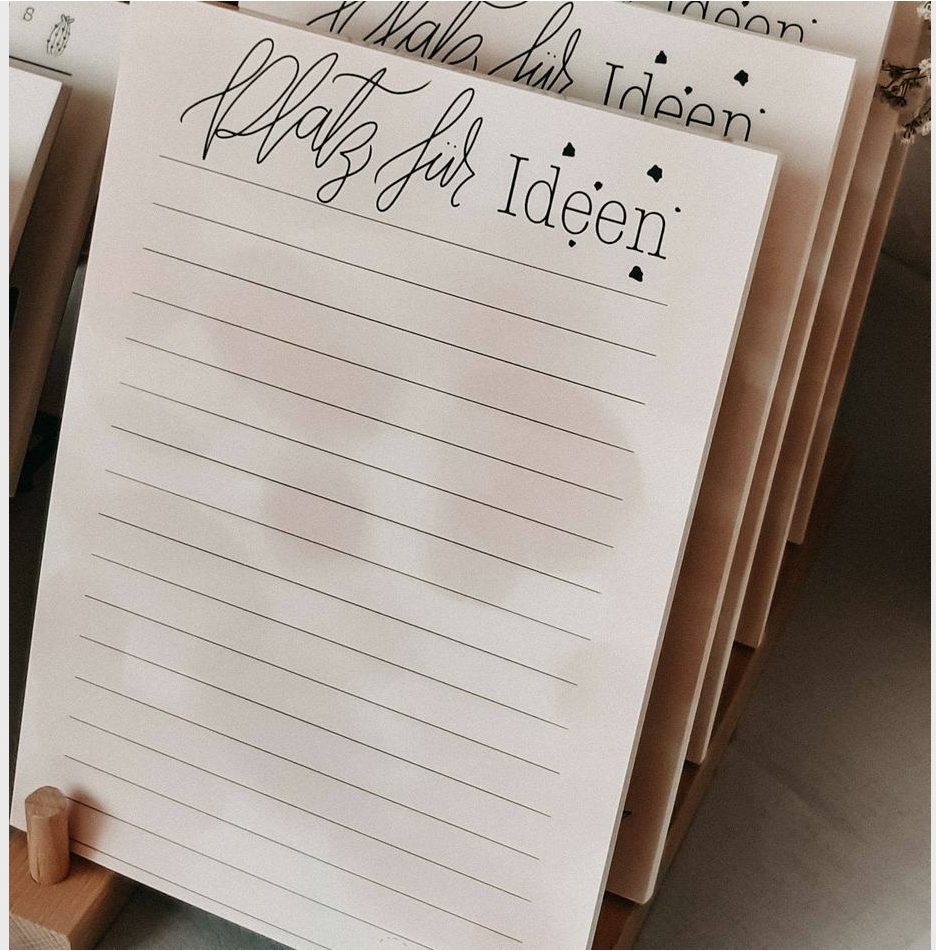 Platz für Ideen
Platz für Ideen
Ideen
8